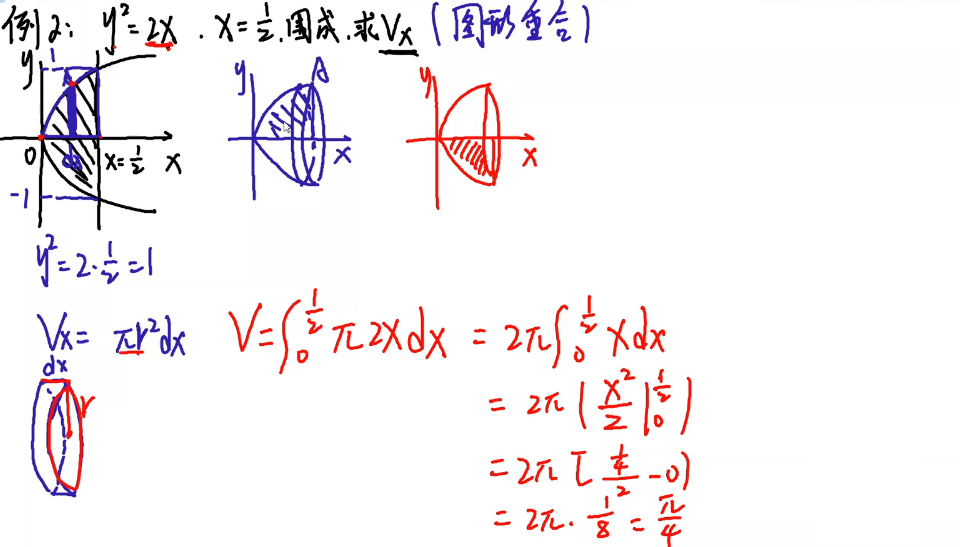 例2: y²=2x . x=1/2 . 围成. 求Vx (图形重合)
y 1 A
0 dx x=1/2 x
-1
y A
x
y
x
y²=2·1/2=1
Vx= πr²dx
dx
r
V=∫₀^(1/2) π2xdx = 2π∫₀^(1/2) xdx
= 2π(x²/2 |₀^(1/2))
=2π[(1/4)/2 -0)
=2π·1/8=π/4